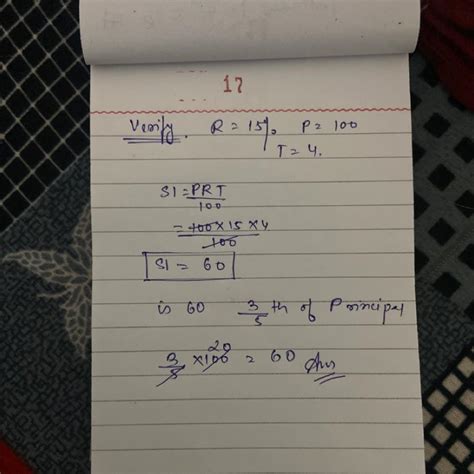 17
Verify. R = 15% P = 100
T = 4.
SI = PRT/100
= 100 × 15 × 4/100
SI = 60
is 60 3/5 th of Principal
3/5 × 100 20 = 60 Ans